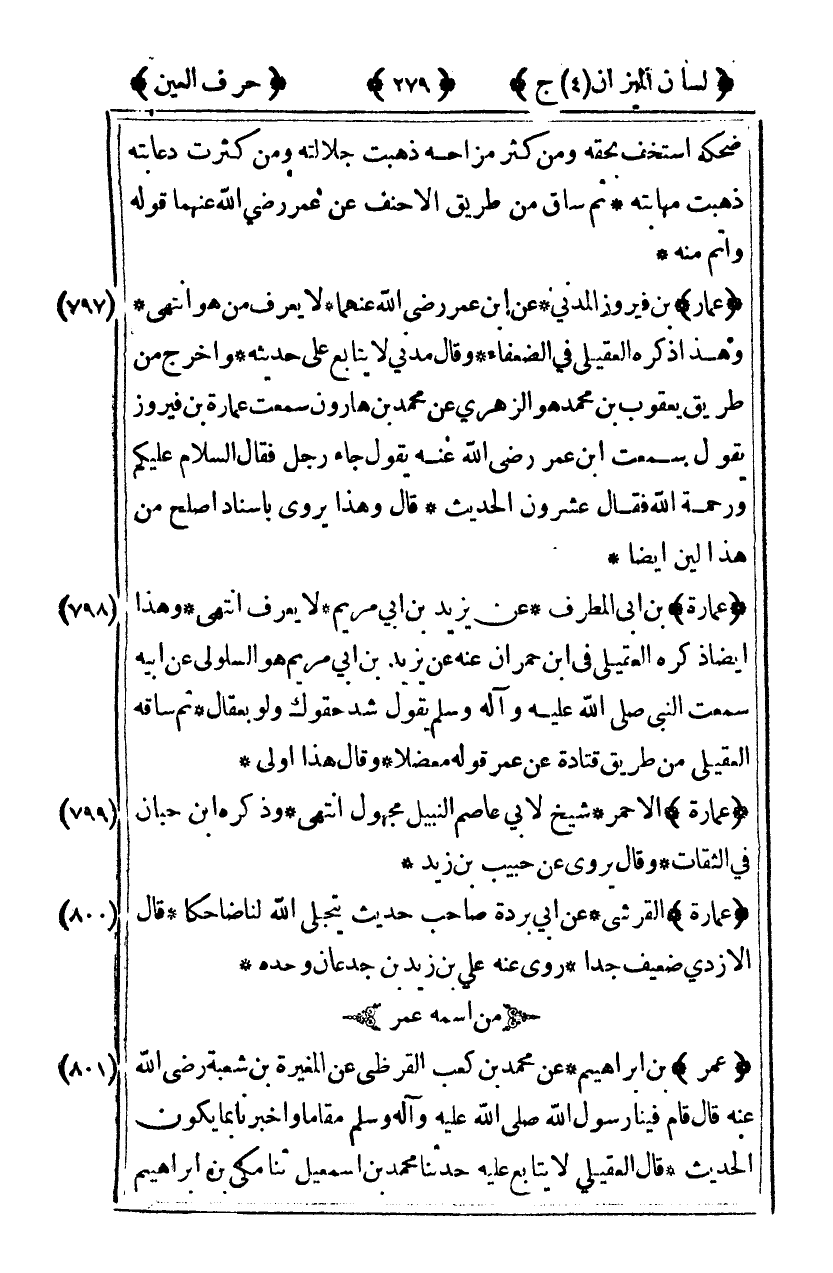 ﴿ لسان الميزان (٤) ج ﴾ ﴿ ٢٧٩ ﴾ ﴿ حرف العين ﴾
ضحكه استخف بحقه ومن كثر مزاحه ذهبت جلالته ومن كثرت دعابته
ذهبت مهابته * ثم ساق من طريق الاحنف عن عمر رضي الله عنهما قوله
واتم منه *
﴿ عمار ﴾ بن فيروز المدني * عن ابن عمر رضى الله عنهما * لا يعرف من هو انتهى * (٧٩٧)
وهذا ذكره العقيلي في الضعفاء * وقال مدني لا يتابع على حديثه * واخرج من
طريق يعقوب بن محمد هو الزهري عن محمد بن هارون سمعت عمارة بن فيروز
يقول سمعت ابن عمر رضى الله عنه يقول جاء رجل فقال السلام عليكم
ورحمة الله فقال عشرون الحديث * قال وهذا يروى باسناد اصلح من
هذا لين ايضا *
﴿ عمارة ﴾ بن ابى المطرف * عن يزيد بن ابي مريم * لا يعرف انتهى * وهذا (٧٩٨)
ايضا ذكره العقيلى فى ابن حمران عنه عن يزيد بن ابي مريم هو السلولى عن ابيه
سمعت النبي صلى الله عليه وآله وسلم يقول شد حقوك ولو بعقال * ثم ساقه
العقيلي من طريق قتادة عن عمر قوله معضلا * وقال هذا اولى *
﴿ عمارة ﴾ الاحمر * شيخ لابي عاصم النبيل مجهول انتهى * وذكره ابن حبان (٧٩٩)
في الثقات * وقال يروى عن حبيب بن زيد *
﴿ عمارة ﴾ القرشى * عن ابي بردة صاحب حديث يتجلى الله لنا ضاحكا * قال (٨٠٠)
الازدي ضعيف جدا * روى عنه علي بن زيد بن جدعان وحده *
من اسمه عمر
﴿ عمر ﴾ بن ابراهيم * عن محمد بن كعب القرظى عن المغيرة بن شعبة رضى الله (٨٠١)
عنه قال قام فينا رسول الله صلى الله عليه وآله وسلم مقاما واخبرنا بما يكون
الحديث * قال العقيلي لا يتابع عليه حدثنا محمد بن اسمعيل ثنا مكي بن ابراهيم